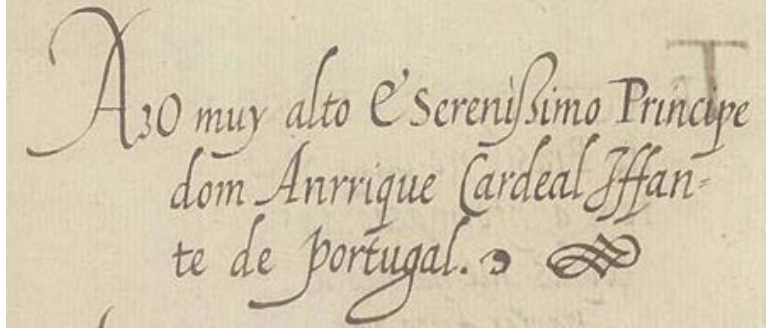 Ao muy alto & Sereníssimo Principe
dom Anrrique Cardeal Iffan-
te de portugal.